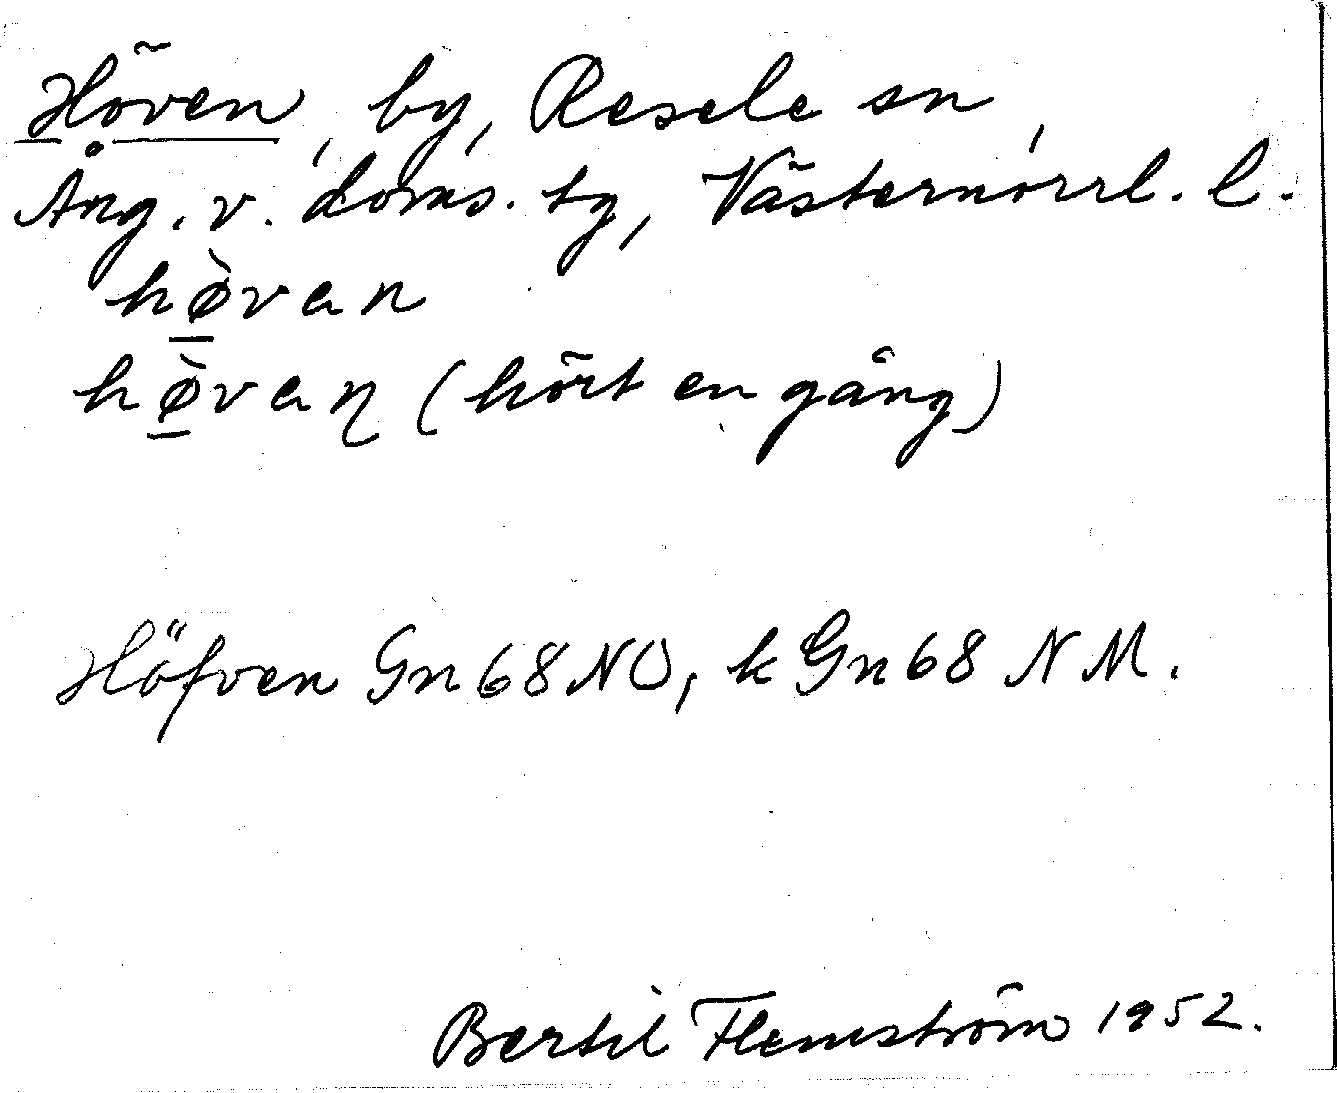 Höven, by, Resele sn,
Ång. v. doms. tg, Västernorrl. l.
hø̀van
hø̀vaꞃ (hört en gång)
Höfven Gn 68 NO, k Gn 68 NM.
Bertil Flemström 1952.